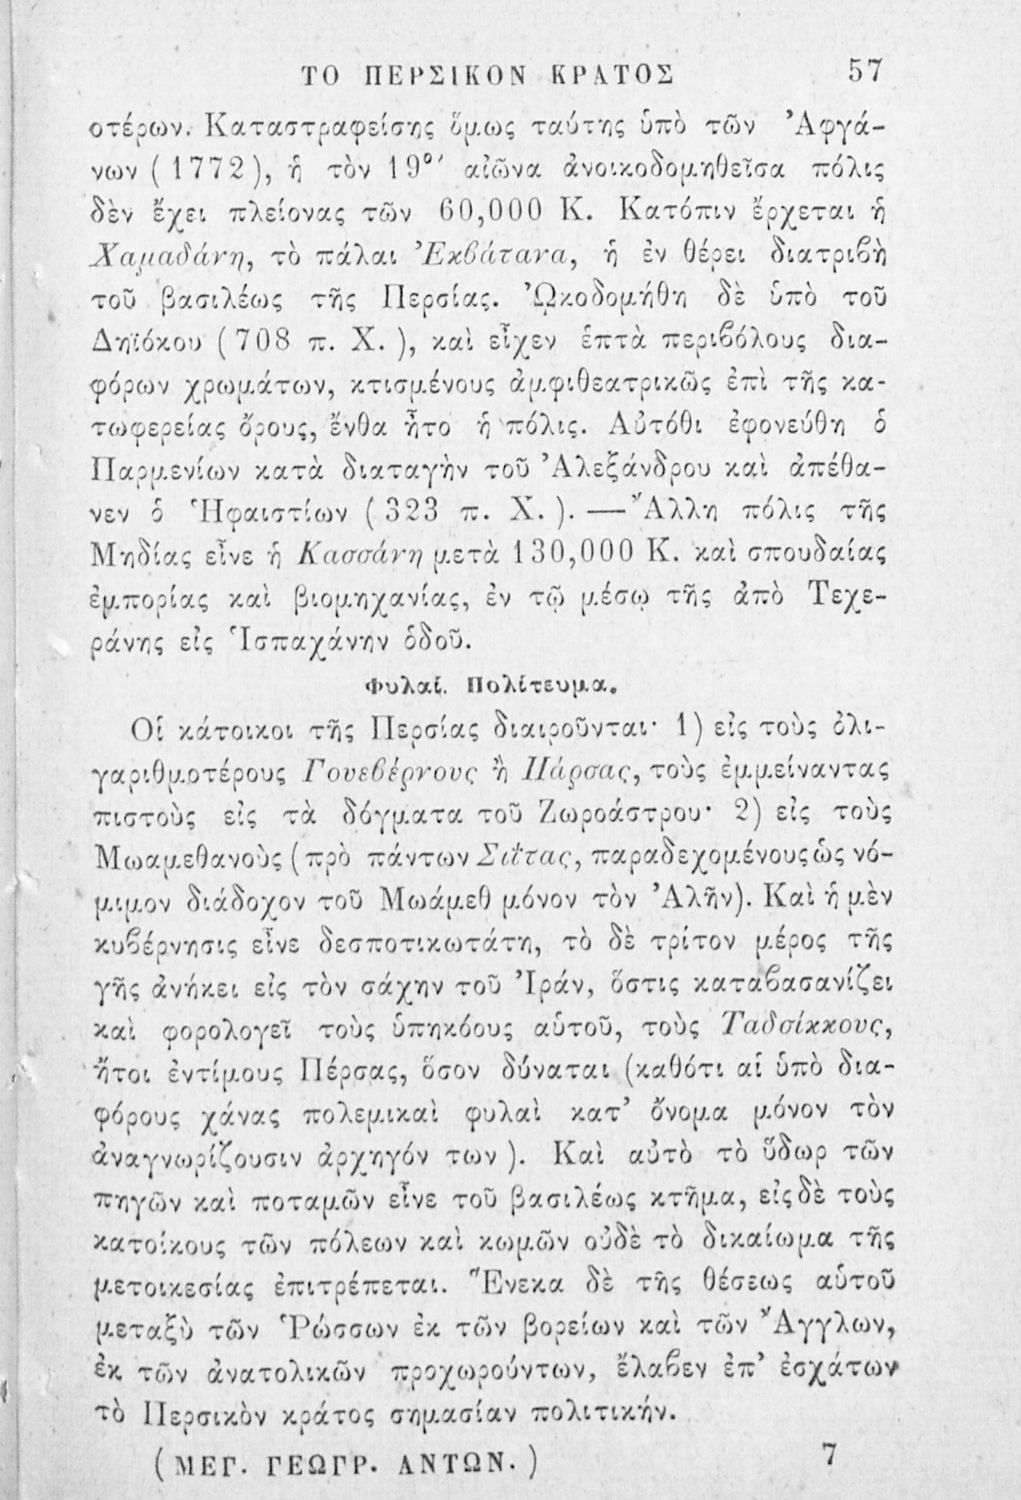 ΤΟ ΠΕΡΣΙΚΟΝ ΚΡΑΤΟΣ 57
οτέρων. Καταστραφείσης ὅμως ταύτης ὑπὸ τῶν Ἀφγά-
νων (1772), ἡ τὸν 19ον αἰῶνα ἀνοικοδομηθεῖσα πόλις
δὲν ἔχει πλείονας τῶν 60,000 Κ. Κατόπιν ἔρχεται ἡ
Χαμαδάνη, τὸ πάλαι Ἐκβάτανα, ἡ ἐν θέρει διατριβὴ
τοῦ βασιλέως τῆς Περσίας. Ὠκοδομήθη δὲ ὑπὸ τοῦ
Δηϊόκου (708 π. Χ.), καὶ εἶχεν ἑπτὰ περιβόλους δια-
φόρων χρωμάτων, κτισμένους ἀμφιθεατρικῶς ἐπὶ τῆς κα-
τωφερείας ὄρους, ἔνθα ἦτο ἡ πόλις. Αὐτόθι ἐφονεύθη ὁ
Παρμενίων κατὰ διαταγὴν τοῦ Ἀλεξάνδρου καὶ ἀπέθα-
νεν ὁ Ἡφαιστίων (323 π. Χ.). — Ἄλλη πόλις τῆς
Μηδίας εἶνε ἡ Κασσάνη μετὰ 130,000 Κ. καὶ σπουδαίας
ἐμπορίας καὶ βιομηχανίας, ἐν τῷ μέσῳ τῆς ἀπὸ Τεχε-
ράνης εἰς Ἱσπαχάνην ὁδοῦ.
Φυλαί. Πολίτευμα.
Οἱ κάτοικοι τῆς Περσίας διαιροῦνται· 1) εἰς τοὺς ὀλι-
γαριθμοτέρους Γουεβέρνους ἢ Πάρσας, τοὺς ἐμμείναντας
πιστοὺς εἰς τὰ δόγματα τοῦ Ζωροάστρου· 2) εἰς τοὺς
Μωαμεθανοὺς (πρὸ πάντων Σιΐτας, παραδεχομένους ὡς νό-
μιμον διάδοχον τοῦ Μωάμεθ μόνον τὸν Ἀλῆν). Καὶ ἡ μὲν
κυβέρνησις εἶνε δεσποτικωτάτη, τὸ δὲ τρίτον μέρος τῆς
γῆς ἀνήκει εἰς τὸν σάχην τοῦ Ἰράν, ὅστις καταβασανίζει
καὶ φορολογεῖ τοὺς ὑπηκόους αὑτοῦ, τοὺς Ταδσίκκους,
ἤτοι ἐντίμους Πέρσας, ὅσον δύναται (καθότι αἱ ὑπὸ δια-
φόρους χάνας πολεμικαὶ φυλαὶ κατ' ὄνομα μόνον τὸν
ἀναγνωρίζουσιν ἀρχηγόν των). Καὶ αὐτὸ τὸ ὕδωρ τῶν
πηγῶν καὶ ποταμῶν εἶνε τοῦ βασιλέως κτῆμα, εἰς δὲ τοὺς
κατοίκους τῶν πόλεων καὶ κωμῶν οὐδὲ τὸ δικαίωμα τῆς
μετοικεσίας ἐπιτρέπεται. Ἕνεκα δὲ τῆς θέσεως αὑτοῦ
μεταξὺ τῶν Ῥώσσων ἐκ τῶν βορείων καὶ τῶν Ἄγγλων,
ἐκ τῶν ἀνατολικῶν προχωρούντων, ἔλαβεν ἐπ' ἐσχάτων
τὸ Περσικὸν κράτος σημασίαν πολιτικήν.
(ΜΕΓ. ΓΕΩΓΡ. ΑΝΤΩΝ.) 7